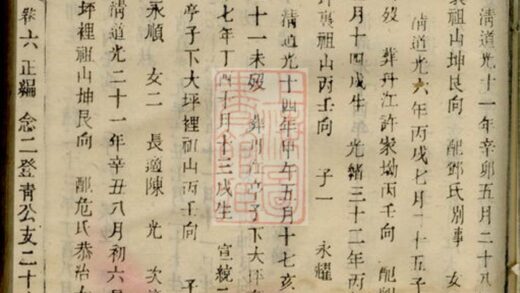 清道光十一年辛卯五月二十八
裏祖山坤艮向 配鄧氏別事 女
清道光六年丙戌七月二十五子
歿 葬丹江許家坳丙壬向 配
月十四戌生 光緒三十二年丙
坪裏祖山丙壬向 子一 永耀
清道光十四年甲午五月十七亥
十一未歿 葬 亭子下大坪
七年丁酉十月十三戌生 宣統二
亭子下大坪裡祖山丙壬向 子
永順 女二 長適陳 光 次適
清道光二十一年辛丑八月初六
坪裡祖山坤艮向 配危氏恭治
卷六 正編 念二登青公支二十